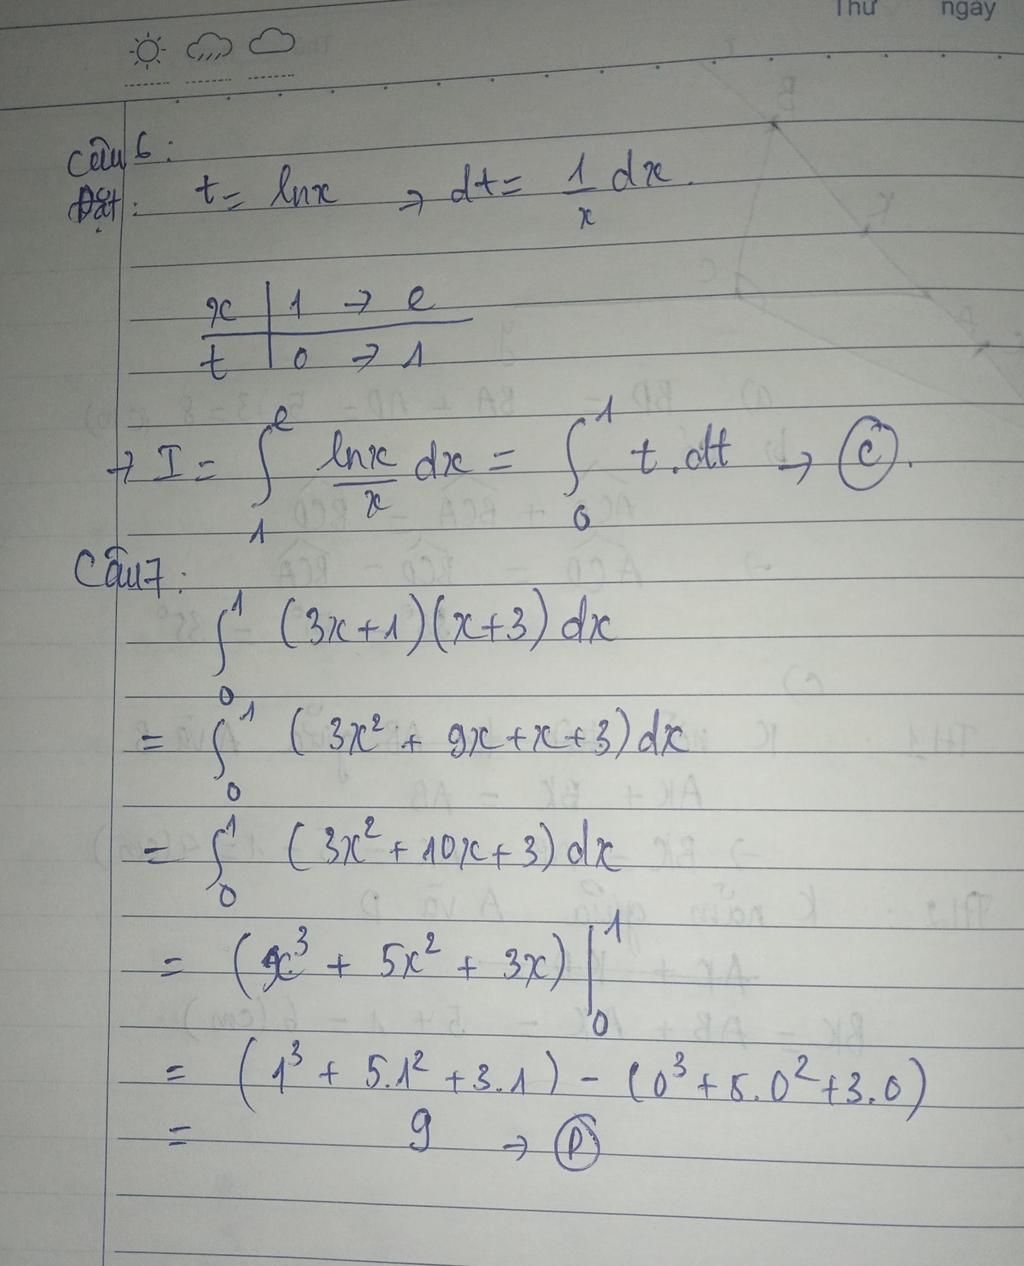 Thứ ngày
Câu 6:
Đặt: t = lnx → dt = 1/x dx.
x | 1 → e
t | 0 → 1
→ I = ∫₁ᵉ lnx/x dx = ∫₀¹ t.dt → C.
Câu 7:
∫₀¹ (3x+1)(x+3) dx
= ∫₀¹ (3x² + 9x + x + 3) dx
= ∫₀¹ (3x² + 10x + 3) dx
= (x³ + 5x² + 3x) |₀¹
= (1³ + 5.1² + 3.1) - (0³ + 5.0² + 3.0)
= 9 → D